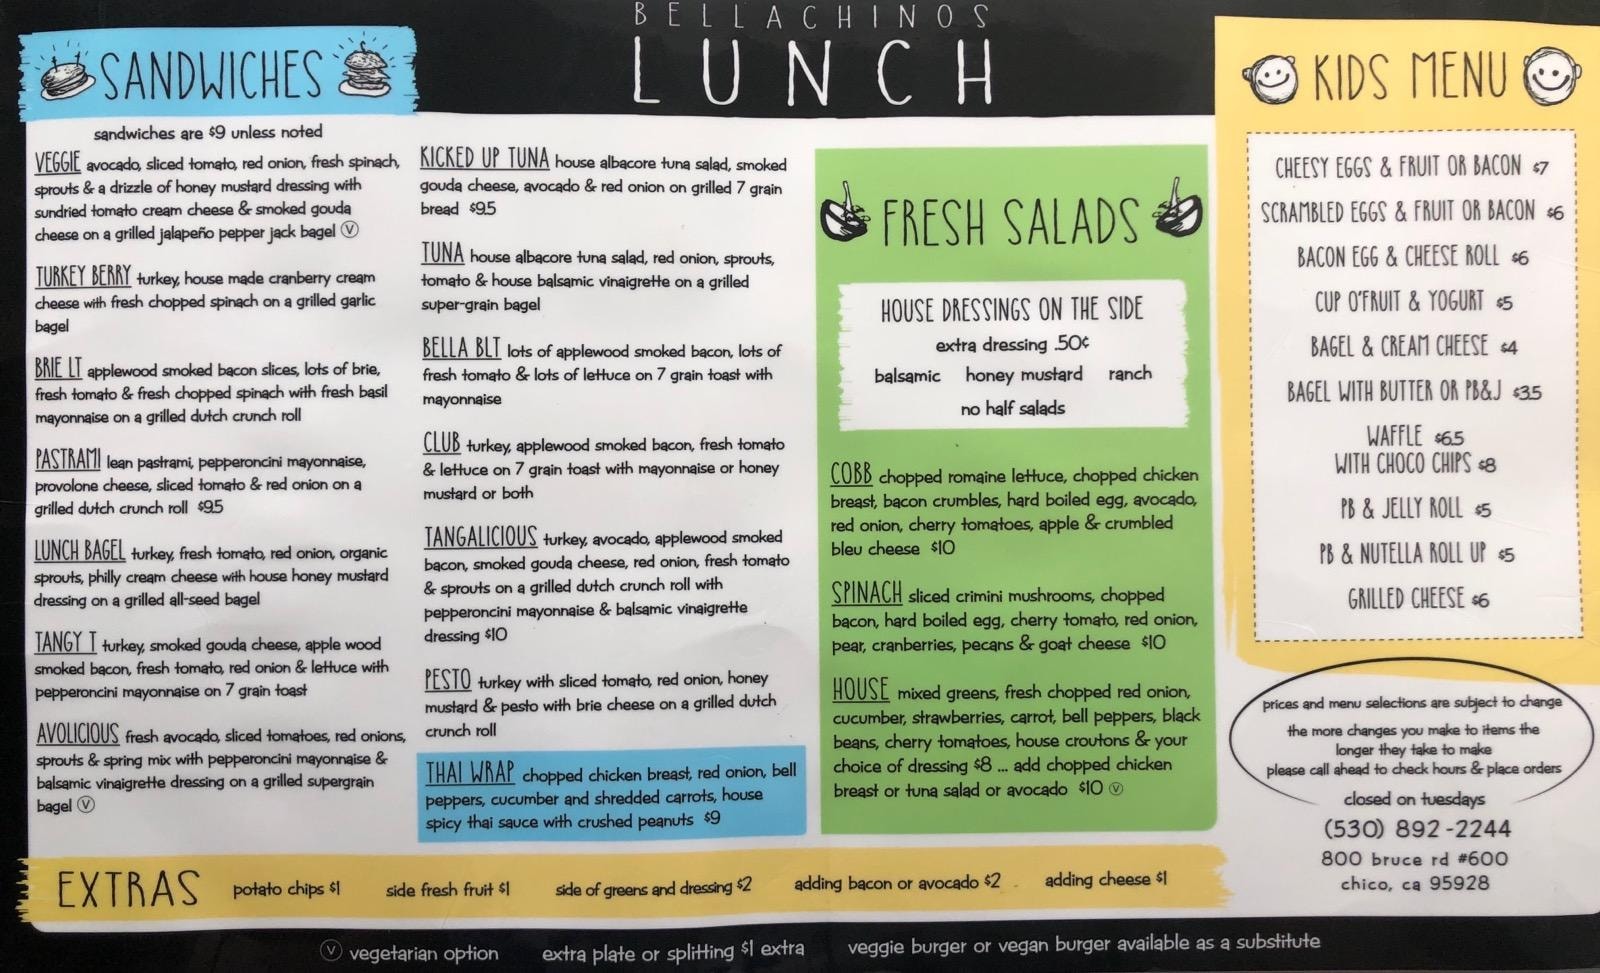 BELLACHINOS
LUNCH
SANDWICHES
sandwiches are $9 unless noted
VEGGIE avocado, sliced tomato, red onion, fresh spinach,
sprouts & a drizzle of honey mustard dressing with
sundried tomato cream cheese & smoked gouda
cheese on a grilled jalapeño pepper jack bagel Ⓥ
TURKEY BERRY turkey, house made cranberry cream
cheese with fresh chopped spinach on a grilled garlic
bagel
BRIE LT applewood smoked bacon slices, lots of brie,
fresh tomato & fresh chopped spinach with fresh basil
mayonnaise on a grilled dutch crunch roll
PASTRAMI lean pastrami, pepperoncini mayonnaise,
provolone cheese, sliced tomato & red onion on a
grilled dutch crunch roll $9.5
LUNCH BAGEL turkey, fresh tomato, red onion, organic
sprouts, philly cream cheese with house honey mustard
dressing on a grilled all-seed bagel
TANGY T turkey, smoked gouda cheese, apple wood
smoked bacon, fresh tomato, red onion & lettuce with
pepperoncini mayonnaise on 7 grain toast
AVOLICIOUS fresh avocado, sliced tomatoes, red onions,
sprouts & spring mix with pepperoncini mayonnaise &
balsamic vinaigrette dressing on a grilled supergrain
bagel Ⓥ
KICKED UP TUNA house albacore tuna salad, smoked
gouda cheese, avocado & red onion on grilled 7 grain
bread $9.5
TUNA house albacore tuna salad, red onion, sprouts,
tomato & house balsamic vinaigrette on a grilled
super-grain bagel
BELLA BLT lots of applewood smoked bacon, lots of
fresh tomato & lots of lettuce on 7 grain toast with
mayonnaise
CLUB turkey, applewood smoked bacon, fresh tomato
& lettuce on 7 grain toast with mayonnaise or honey
mustard or both
TANGALICIOUS turkey, avocado, applewood smoked
bacon, smoked gouda cheese, red onion, fresh tomato
& sprouts on a grilled dutch crunch roll with
pepperoncini mayonnaise & balsamic vinaigrette
dressing $10
PESTO turkey with sliced tomato, red onion, honey
mustard & pesto with brie cheese on a grilled dutch
crunch roll
THAI WRAP chopped chicken breast, red onion, bell
peppers, cucumber and shredded carrots, house
spicy thai sauce with crushed peanuts $9
FRESH SALADS
HOUSE DRESSINGS ON THE SIDE
extra dressing .50¢
balsamic honey mustard ranch
no half salads
COBB chopped romaine lettuce, chopped chicken
breast, bacon crumbles, hard boiled egg, avocado,
red onion, cherry tomatoes, apple & crumbled
bleu cheese $10
SPINACH sliced crimini mushrooms, chopped
bacon, hard boiled egg, cherry tomato, red onion,
pear, cranberries, pecans & goat cheese $10
HOUSE mixed greens, fresh chopped red onion,
cucumber, strawberries, carrot, bell peppers, black
beans, cherry tomatoes, house croutons & your
choice of dressing $8 ... add chopped chicken
breast or tuna salad or avocado $10 Ⓥ
KIDS MENU
CHEESY EGGS & FRUIT OR BACON $7
SCRAMBLED EGGS & FRUIT OR BACON $6
BACON EGG & CHEESE ROLL $6
CUP O'FRUIT & YOGURT $5
BAGEL & CREAM CHEESE $4
BAGEL WITH BUTTER OR PB&J $3.5
WAFFLE $6.5
WITH CHOCO CHIPS $8
PB & JELLY ROLL $5
PB & NUTELLA ROLL UP $5
GRILLED CHEESE $6
prices and menu selections are subject to change
the more changes you make to items the
longer they take to make
please call ahead to check hours & place orders
closed on tuesdays
(530) 892-2244
800 bruce rd #600
chico, ca 95928
EXTRAS potato chips $1 side fresh fruit $1 side of greens and dressing $2 adding bacon or avocado $2 adding cheese $1
Ⓥ vegetarian option extra plate or splitting $1 extra veggie burger or vegan burger available as a substitute